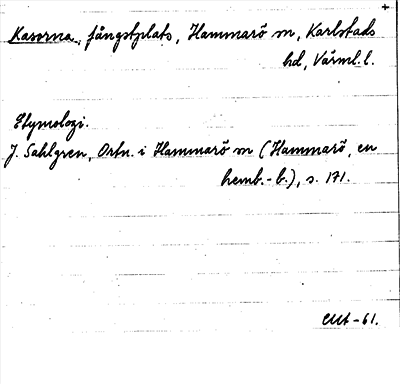 +
Kaserna, fångstplats, Hammarö sn, Karlstads
hd, Värml. l.
Etymologi.
J. Sahlgren, Ortn. i Hammarö sn (Hammarö, en
hemb.-b.), s. 171.
-61.